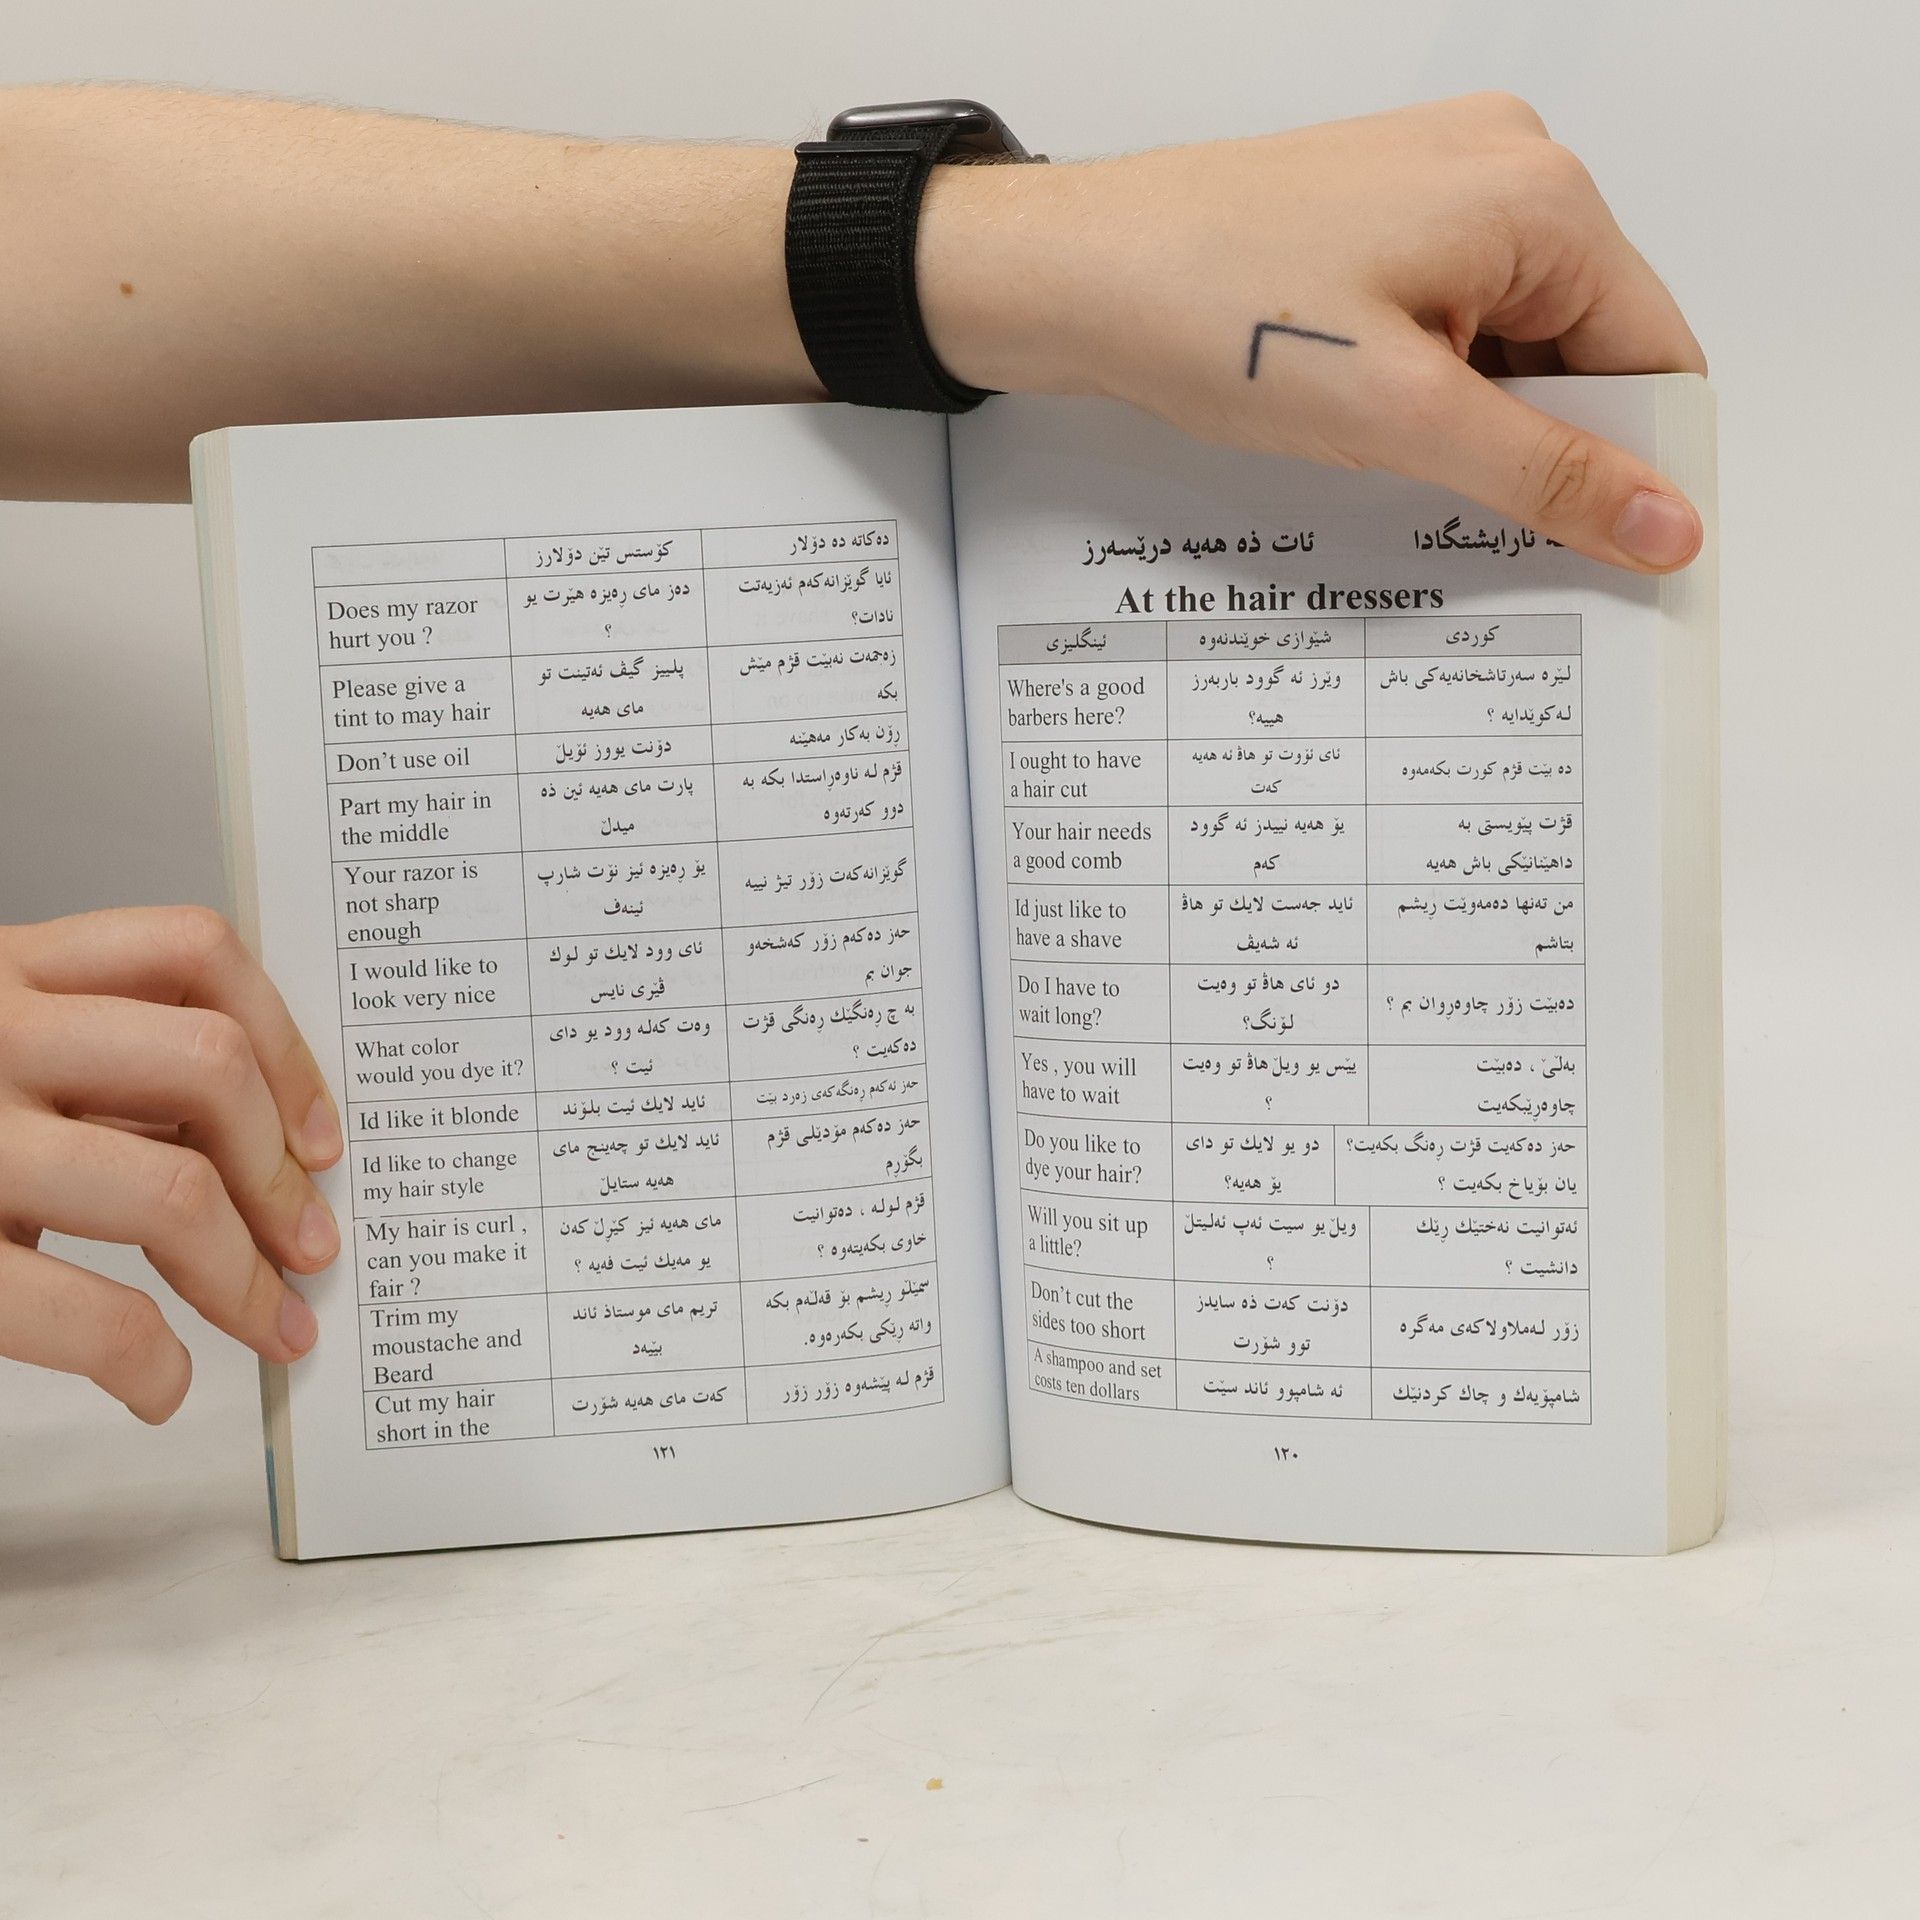 ئارایشتگادا
ئات ذە هەیە درێسەرز
At the hair dressers
كوردی
شێوازی خوێندنەوە
ئینگلیزی
لێرە سەرتاشخانەیەكی باش
لەكوێدایە ؟
وێرز ئە گوود باربەرز
هییە؟
Where's a good
barbers here?
دە بێت قژم كورت بكەمەوە
ئای ئۆوت تو هاڤ ئە هەیە
كەت
I ought to have
a hair cut
قژت پێویستی بە
داهێنانێكی باش هەیە
یۆ هەیە نییدز ئە گوود
كەم
Your hair needs
a good comb
من تەنها دەمەوێت ڕیشم
بتاشم
ئاید جەست لایك تو هاڤ
ئە شەیڤ
Id just like to
have a shave
دەبێت زۆر چاوەڕوان بم ؟
دو ئای هاڤ تو وەیت
لۆنگ؟
Do I have to
wait long?
بەڵێ ، دەبێت
چاوەڕێبكەیت
یێس یو ویڵ هاڤ تو وەیت
؟
Yes , you will
have to wait
حەز دەكەیت قژت ڕەنگ بكەیت؟
یان بۆیاخ بكەیت ؟
دو یو لایك تو دای
یۆ هەیە؟
Do you like to
dye your hair?
ئەتوانیت نەختێك ڕێك
دانشیت ؟
ویڵ یو سیت ئەپ ئەلیتڵ
؟
Will you sit up
a little?
زۆر لەملاولاكەی مەگرە
دۆنت كەت ذە سایدز
توو شۆرت
Don't cut the
sides too short
شامپۆیەك و چاك كردنێك
ئە شامپوو ئاند سێت
A shampoo and set
costs ten dollars
١٢٠
دەكاتە دە دۆلار
كۆستس تێن دۆلارز
ئایا گوێزانەكەم ئەزیەتت
نادات؟
دەز مای ڕەیزە هێرت یو
؟
Does my razor
hurt you ?
زەحمەت نەبێت قژم مێش
بكە
پلییز گیڤ ئەتینت تو
مای هەیە
Please give a
tint to may hair
ڕۆن بەكار مەهێنە
دۆنت یووز ئۆیڵ
Don't use oil
قژم لە ناوەڕاستدا بكە بە
دوو كەرتەوە
پارت مای هەیە ئین ذە
میدڵ
Part my hair in
the middle
گوێزانەكەت زۆر تیژ نییە
یۆ ڕەیزە ئیز نۆت شارپ
ئینەف
Your razor is
not sharp
enough
حەز دەكەم زۆر كەشخەو
جوان بم
ئای وود لایك تو لوك
ڤێری نایس
I would like to
look very nice
بە چ ڕەنگێك ڕەنگی قژت
دەكەیت ؟
وەت كەلە وود یو دای
ئیت ؟
What color
would you dye it?
حەز ئەكەم ڕەنگەكەی زەرد بێت
ئاید لایك ئیت بلۆند
Id like it blonde
حەز دەكەم مۆدێلی قژم
بگۆڕم
ئاید لایك تو چەینج مای
هەیە ستایڵ
Id like to change
my hair style
قژم لولە ، دەتوانیت
خاوی بكەیتەوە ؟
مای هەیە ئیز كێرڵ كەن
یو مەیك ئیت فەیە ؟
My hair is curl ,
can you make it
fair ?
سمێڵو ڕیشم بۆ قەڵەم بكە
واتە ڕێكی بكەرەوە.
تریم مای موستاذ ئاند
بێیەد
Trim my
moustache and
Beard
قژم لە پێشەوە زۆر زۆر
كەت مای هەیە شۆرت
Cut my hair
short in the
١٢١